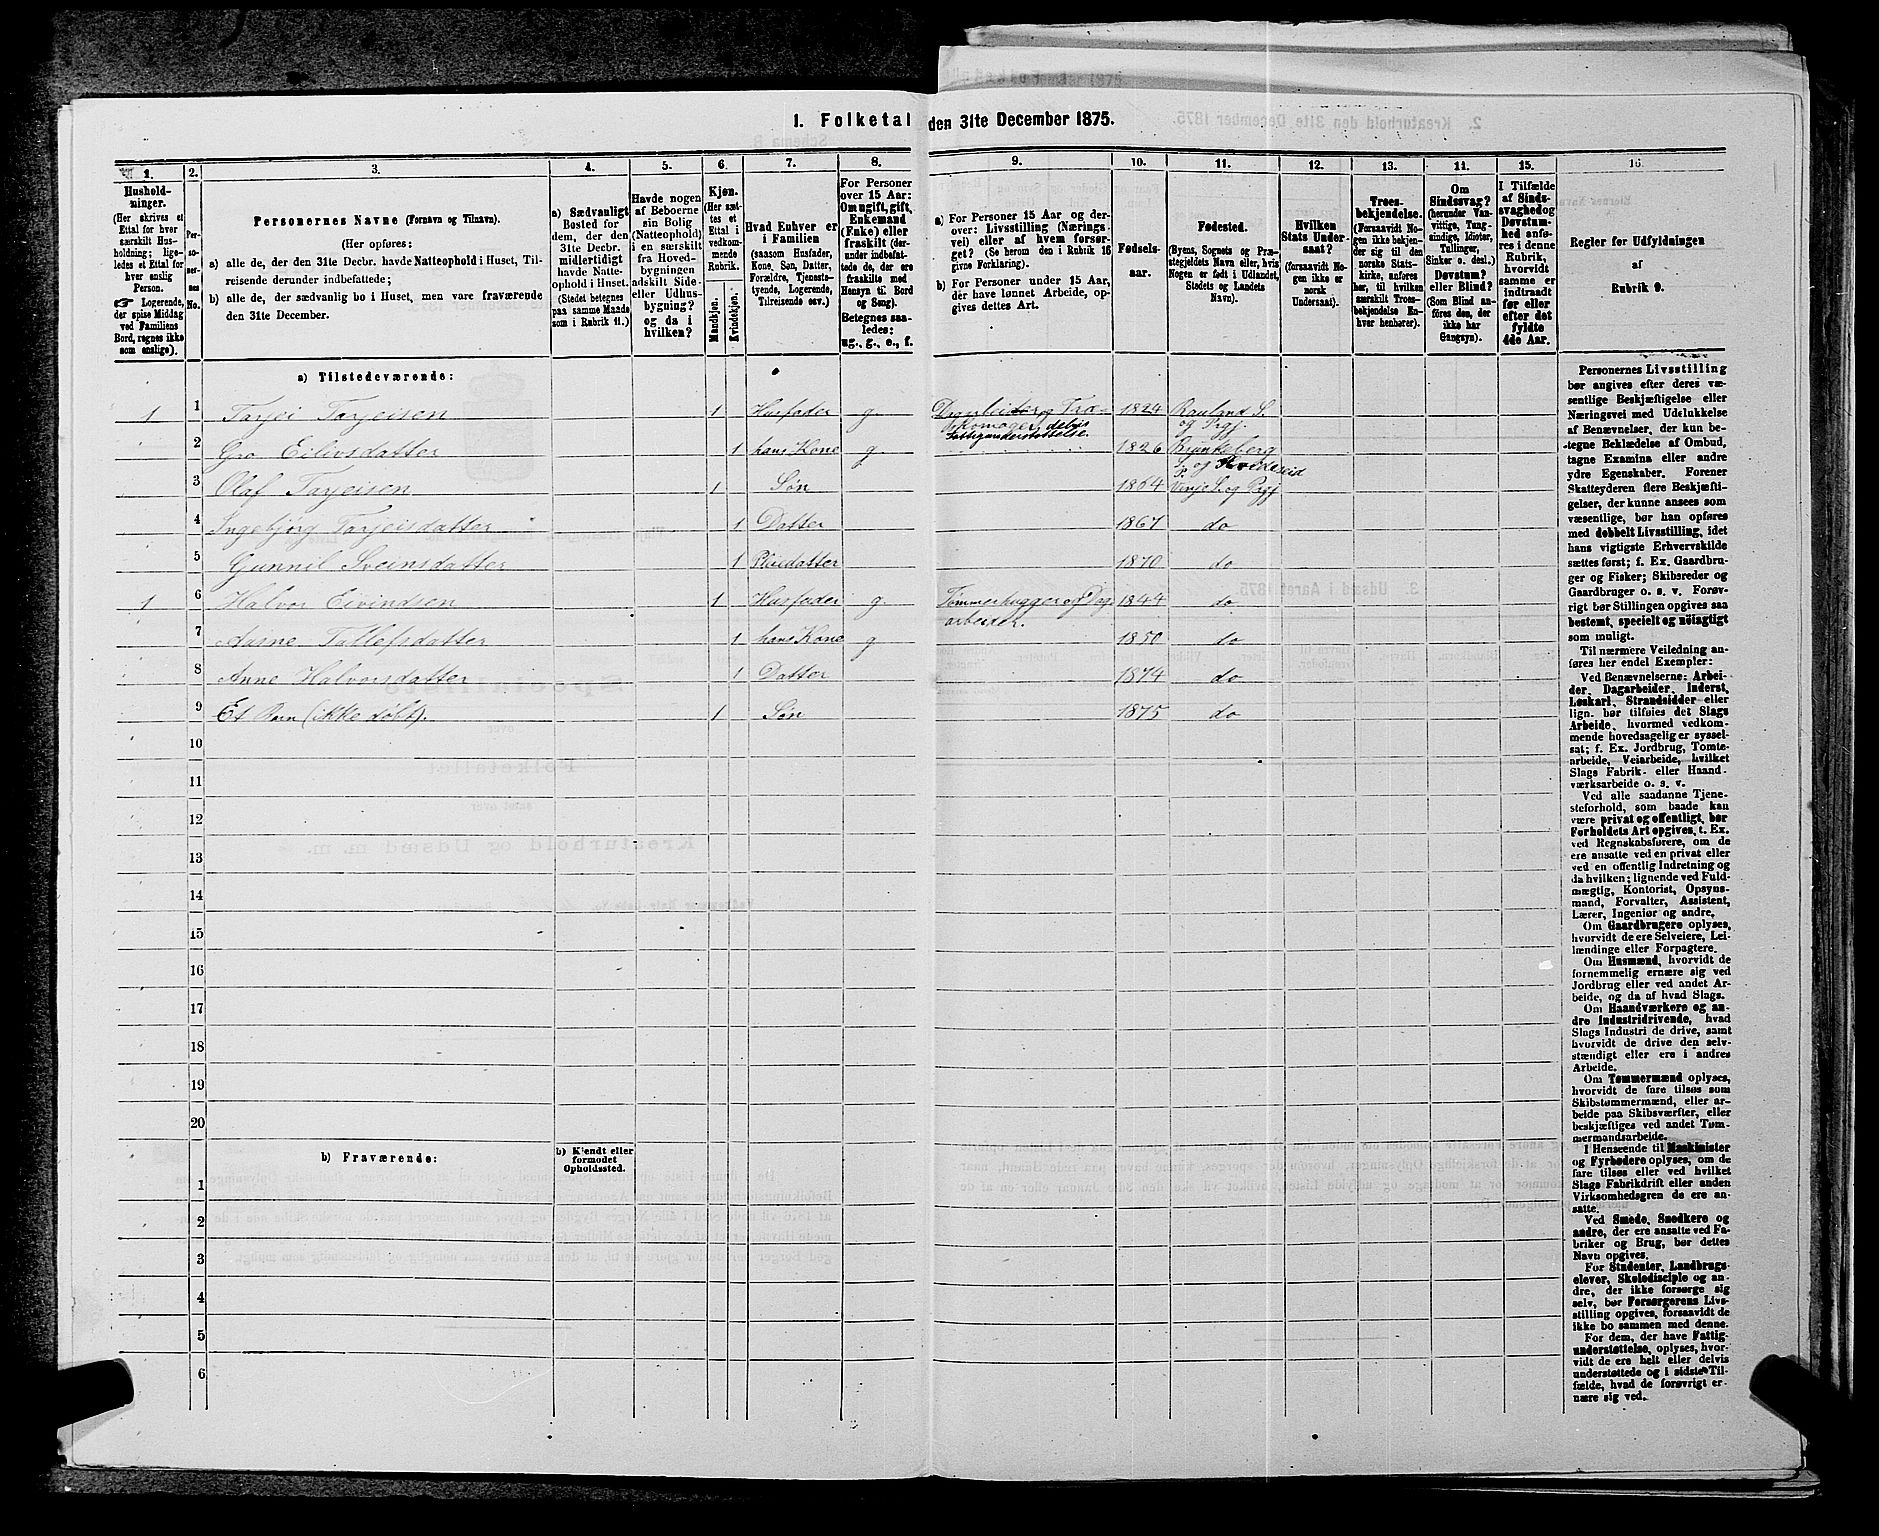 1. Folketal den 31te December 1875.
1.
Hushold-
ninger.
(Her skrives et
Ettal for hver
særskilt Hus-
holdning; lige-
ledes et Ettal for
hver enslig
Person.
☞ Logerende,
der spise Middag
ved Familiens
Bord, regnes ikke
som enslige).
2.
Per-
so-
ner-
nes
No.
3.
Personernes Navne (Fornavn og Tilnavn).
(Her opføres:
a) alle de, der den 31te Decbr. havde Natteophold i Huset, Til-
reisende derunder indbefattede;
b) alle de, der sædvanlig bo i Huset, men vare fraværende
den 31te December.
4.
a) Sædvanligt
Bosted for
dem, der den
31te Decbr.
midlertidigt
havde Natte-
ophold i Huset.
(Stedet betegnes
paa samme Maade
som i Rubrik 11.)
5.
Havde nogen
af Beboerne
sin Bolig
(Natteophold)
i en særskilt
fra Hoved-
bygningen
adskilt Side-
eller Udhus-
bygning?
og da i
hvilken?
6.
Kjøn.
(Her sæt-
tes et
Ettal i
vedkom-
mende
Rubrik.
Mandkjøn.
Kvindekjøn.
7.
Hvad Enhver er
i Familien
(saasom Husfader,
Kone, Søn, Datter,
Forældre, Tjeneste-
tyende, Logerende,
Tilreisende osv.)
8.
For Personer
over 15 Aar:
Om ugift, gift,
Enkemand
(Enke) eller
fraskilt (der-
under indbefat-
tede de, der ere
fraskilte med
Hensyn til Bord
og Seng).
Betegnes saa-
ledes:
ug., g., e., f.
9.
a) For Personer 15 Aar og der-
over: Livsstilling (Nærings-
vei) eller af hvem forsør-
get? (Se herom den i Rubrik 16
givne Forklaring).
b) For Personer under 15 Aar,
der have lønnet Arbeide, op-
gives dettes Art.
10.
Fødsels-
aar.
11.
Fødested.
(Byens, Sognets og Præ-
stegjeldets Navn eller, hvis
Nogen er født i Udlandet,
Stedets og Landets
Navn).
12.
Hvilken
Stats Under-
saat?
(forsaavidt No-
gen ikke er
norsk
Undersaat).
13.
Troes-
bekjendelse.
(Forsaavidt No-
gen ikke bekjen-
der sig til den
norske Stats-
kirke, anføres
her, til hvilken
særskilt Troes-
bekjendelse En-
hver henhører).
14.
Om
Sindssvag?
(herunder Van-
vittige, Tung-
sindige, Idioter,
Tullinger,
Sinker o. desl.)
Døvstum?
eller Blind?
(Som Blind an-
føres den, der
ikke har
Gangsyn).
15.
I Tilfælde
af Sinds-
svaghed og
Døvstum-
hed anfø-
res i denne
Rubrik,
hvorvidt
samme er
indtraadt
før eller
efter det
fyldte
4de Aar.
16.
Regler for Udfyldningen
af
Rubrik 9.
a) Tilstedeværende:
1 1 Tarjei Tarjeisen 1 Husfader g. Dagarbeider og Træ- 1824 Rauland S.
skomager, delvis og Prgj.
Fattigunderstøttelse.
2 Gro Eilivsdatter 1 hans Kone g. 1826 Brunkeberg
S. og Kviteseid
P.
3 Olaf Tarjeisen 1 Søn 1864 Vinje S. og Prgj
4 Ingebjørg Tarjeisdatter 1 Datter 1867 do
5 Gunnil Sveinsdatter 1 Pleiedatter 1870 do
1 6 Halvor Eivindsen 1 Husfader g. Tømmerhugger og Dag- 1844 do
arbeider.
7 Aasne Tallefsdatter 1 hans Kone g 1850 do
8 Anne Halvorsdatter 1 Datter 1874 do
9 Et Barn (ikke døbt). 1 Søn 1875 do
10
11
12
13
14
15
16
17
18
19
20
b) Fraværende:
b) Kjendt eller
formodet
Opholdssted.
1
2
3
4
5
6
Personernes Livsstilling
bør angives efter deres væ-
sentlige Beskjæftigelse eller
Næringsvei med Udelukkelse
af Benævnelser, der kun be-
tegne Beklædelse af Ombud,
tagne Examina eller andre
ydre Egenskaber. Forener
Skatteyderen flere Beskjæfti-
gelser, der kunne ansees som
væsentlige, bør han opføres
med dobbelt Livsstilling, idet
hans vigtigste Erhvervskilde
sættes først; f. Ex. Gaardbru-
ger og Fisker; Skibsreder og
Gaardbruger o. s. v. Forøv-
rigt bør Stillingen opgives saa
bestemt, specielt og nöiagtigt
som muligt.
Til nærmere Veiledning an-
føres her endel Exempler:
Ved Benævnelserne: Arbei-
der, Dagarbeider, Inderst,
Løskarl, Strandsidder eller
lign. bør tilføies det Slags
Arbeide, hvormed vedkom-
mende hovedsagelig er syssel-
sat; f. Ex. Jordbrug, Tomte-
arbeide, Veiarbeide, hvilket
Slags Fabrik- eller Haand-
værksarbeide o. s. v.
Ved alle saadanne Tjene-
steforhold, som baade kan
være privat og offentligt, bør
Forholdets Art opgives, t. Ex.
ved Regnskabsførere, om de
ere ansatte ved en privat eller
ved en offentlig Indretning og
da hvilken; lignende ved Fuld-
mægtig, Kontorist, Opsyns-
mand, Forvalter, Assistent,
Lærer, Ingeniør og andre.
Om Gaardbrugere oplyses,
hvorvidt de ere Selveiere, Lei-
lændinge eller Forpagtere.
Om Husmænd, hvorvidt de
fornemmelig ernære sig ved
Jordbrug eller ved andet Ar-
beide, og da af hvad Slags.
Om Haandværkere og an-
dre Industridrivende, hvad
Slags Industri de drive, samt
hvorvidt de drive den selv-
stændigt eller ere i andres
Arbeide.
Om Tømmermænd oplyses,
hvorvidt de fare tilsøs som
Skibstømmermænd, eller ar-
beide paa Skibsværfter, eller
beskjæftiges ved andet Tøm-
mermandsarbeide.
I Henseende til Maskinister
og Fyrbødere oplyses, om de
fare tilsøs eller ved hvilket
Slags Fabrikdrift eller anden
Virksomhedsgren de ere an-
satte.
Ved Smede, Snedkere og
andre, der ere ansatte ved Fa-
briker og Brug, bør dettes
Navn opgives.
For Studenter, Landbrugs-
elever, Skoledisciple og an-
dre, der ikke forsørge sig
selv, bør Forsørgerens Livs-
stilling opgives, forsaavidt de
ikke bo sammen med denne.
For dem, der have Fattig-
understøttelse, oplyses, hvor-
vidt de ere helt eller delvis
understøttede og i sidste Til-
fælde, hvad de forøvrigt er-
nære sig ved.